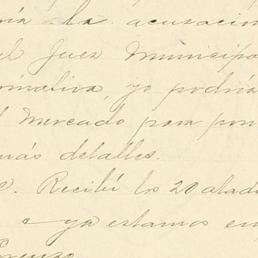 ría la acusación
el Juez Municipal
ormativa, yo podría
l mercado para pon
más detalles.
P. Recibí los 20 atad
e ya estamos en